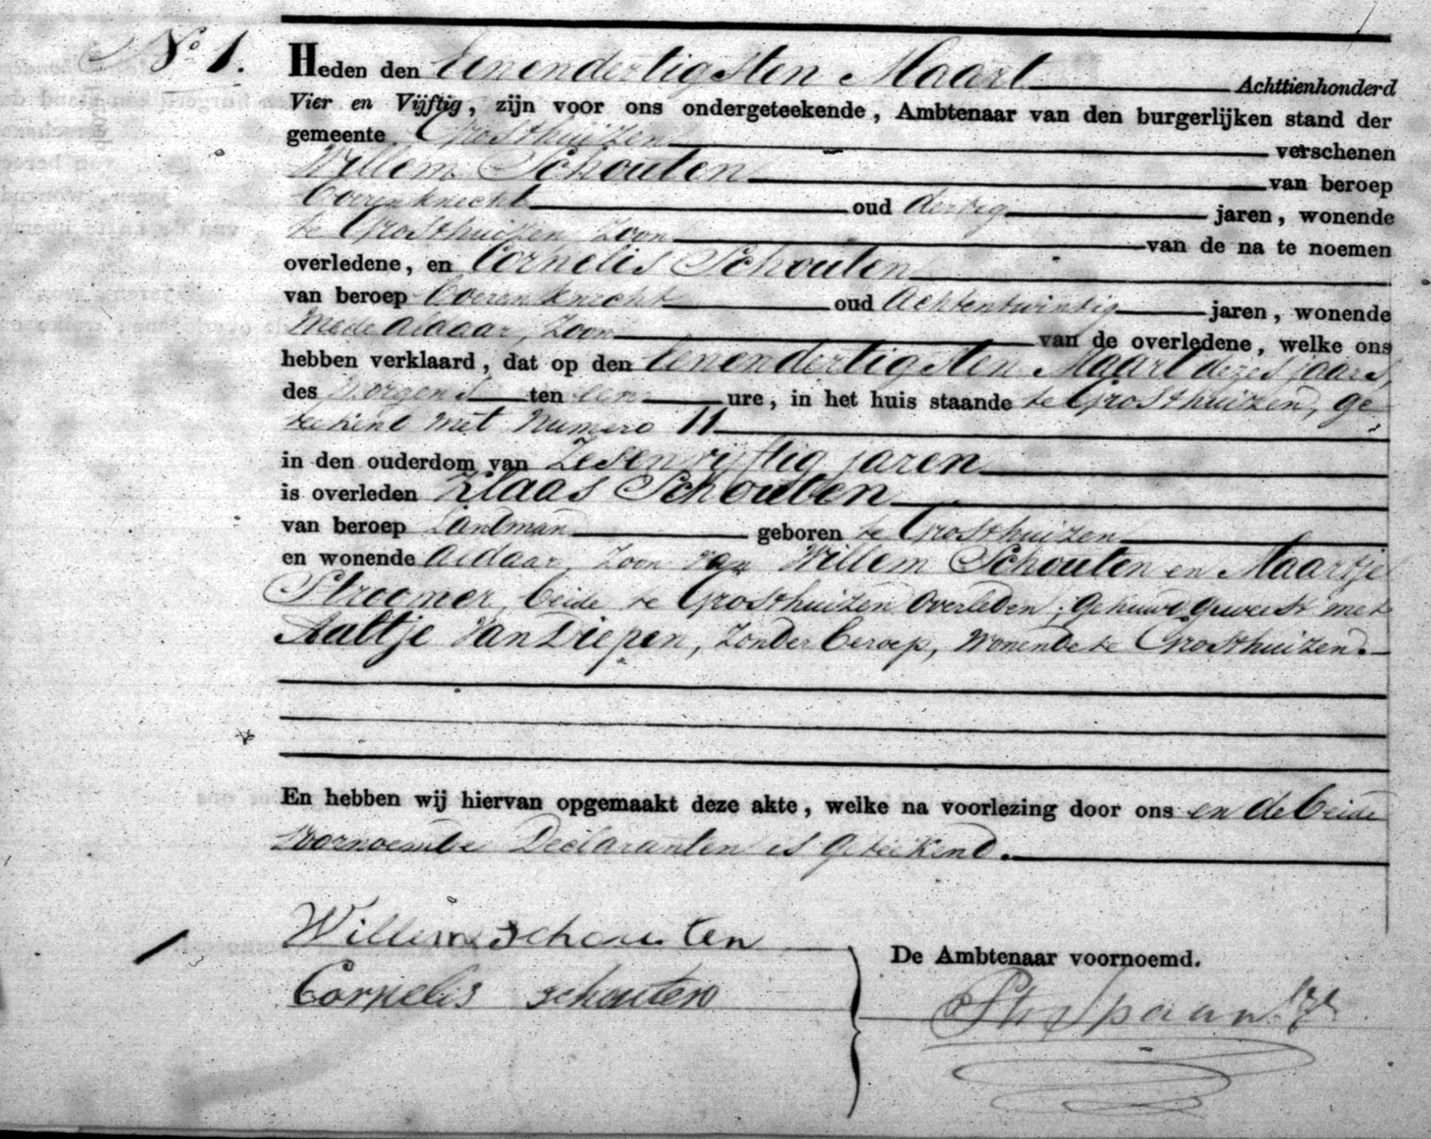 No 1.
Heden den Eenendertigsten Maart Achttienhonderd
Vier en Vijftig, zijn voor ons ondergeteekende, Ambtenaar van den burgerlijken stand der
gemeente Grosthuizen verschenen
Willem Schouten van beroep
boerenknecht oud dertig jaren, wonende
te Grosthuizen zoon van de na te noemen
overledene, en Cornelis Schouten
van beroep boerenknecht oud Achtentwintig jaren, wonende
mede aldaar, zoon van de overledene, welke ons
hebben verklaard, dat op den Eenendertigsten Maart dezes jaars,
des morgens ten een ure, in het huis staande te Grosthuizen, ge-
teekend met numero 11
in den ouderdom van Zesenvijftig jaren
is overleden Klaas Schouten
van beroep Landman geboren te Grosthuizen
en wonende aldaar, zoon van Willem Schouten en Maartje
Stroomer, beide te Grosthuizen overleden; gehuwd geweest met
Aaltje van Diepen, zonder beroep, wonende te Grosthuizen.
En hebben wij hiervan opgemaakt deze akte, welke na voorlezing door ons en de beide
voornoemde Declaranten is geteekend.
Willem schouten
Cornelis schouten
De Ambtenaar voornoemd.
Spaan